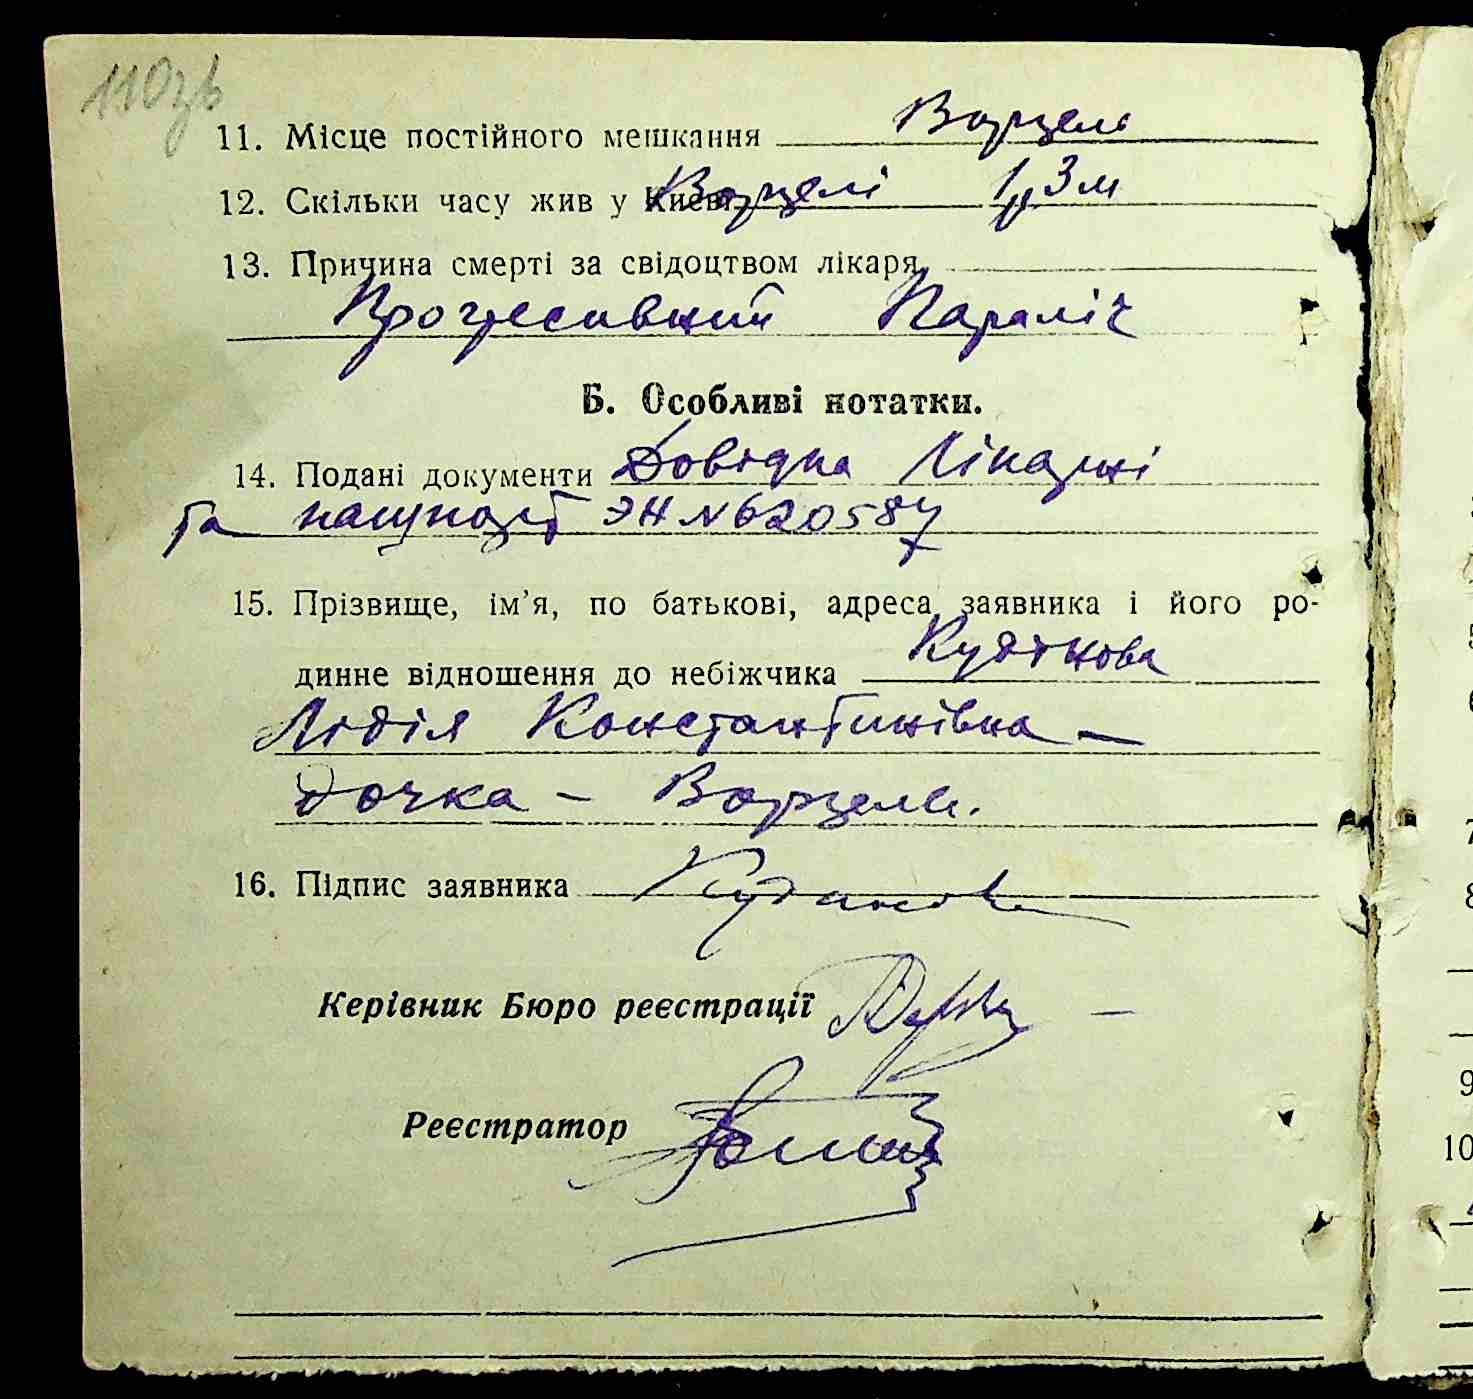 110зв
11. Місце постійного мешкання Ворцель
12. Скільки часу жив у Києві Ворцелі 1р 3 м
13. Причина смерті за свідоцтвом лікаря
Прогресивний Параліч
Б. Особливі нотатки.
14. Подані документи Довідка Лікарні
та пашпорт ЭН № 620587
15. Прізвище, ім’я, по батькові, адреса заявника і його ро-
динне відношення до небіжчика
Лідія Константинівна —
дочка – Ворцель.
16. Підпис заявника
Керівник Бюро реєстрації
Реєстратор
5
6
7
8
9
10